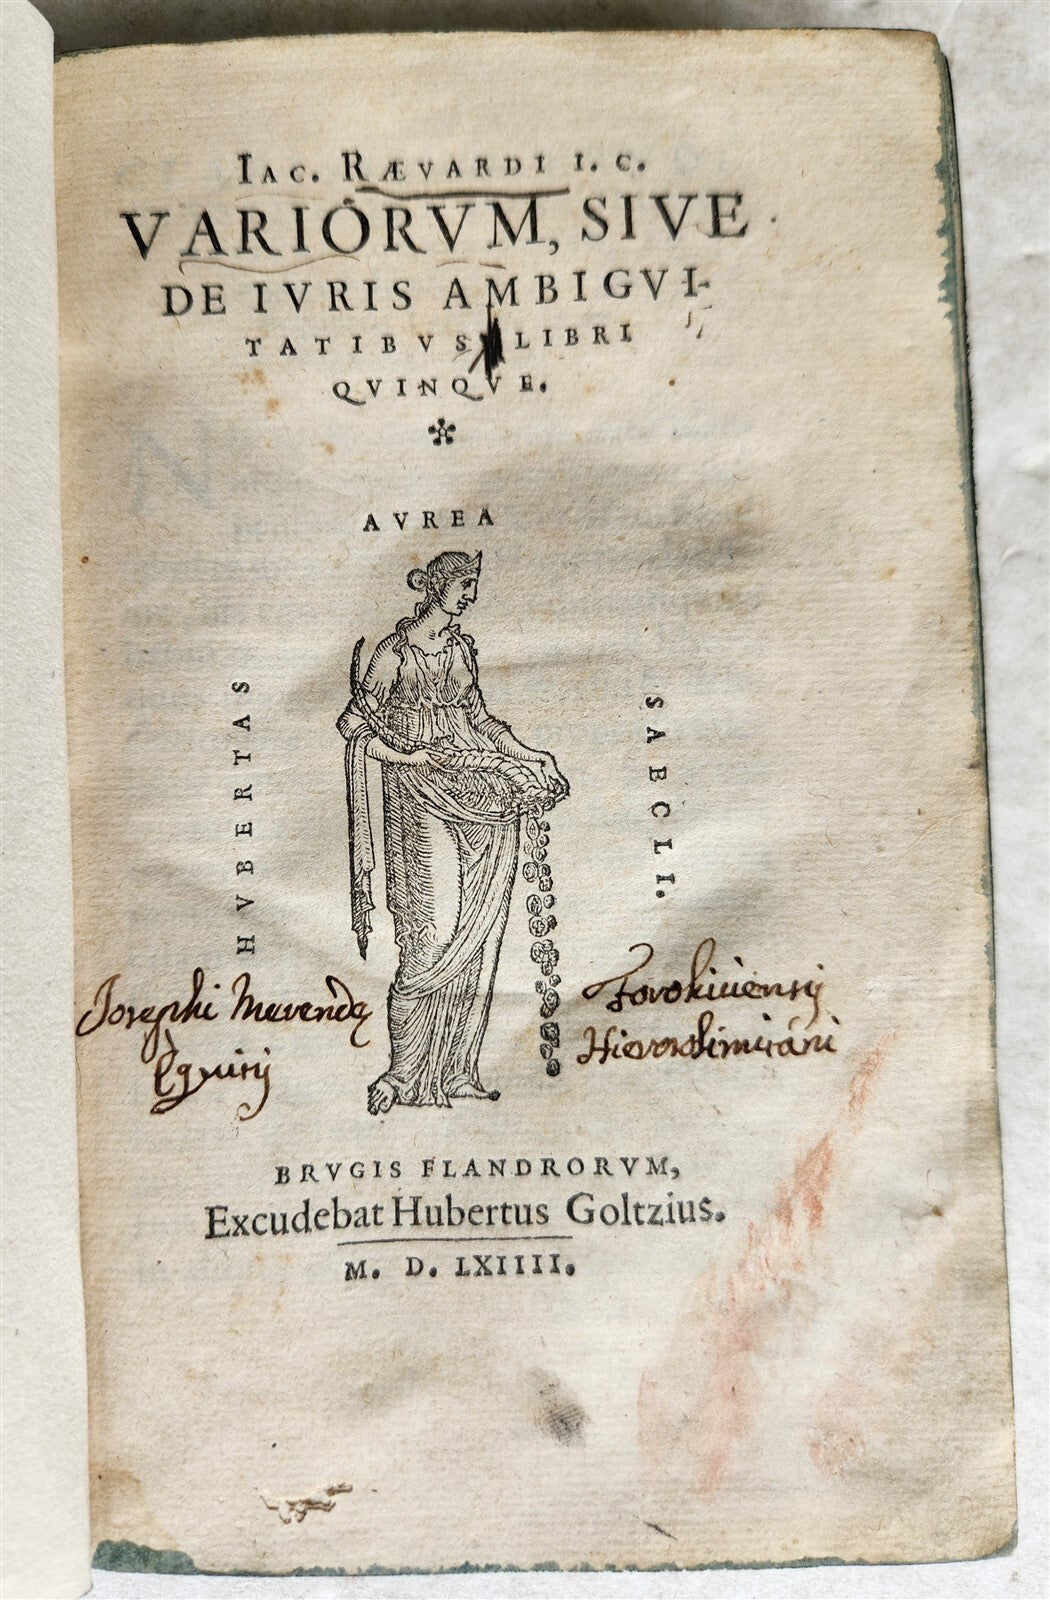 IAC. RÆVARDI I. C.
VARIORVM, SIVE
DE IVRIS AMBIGVI-
TATIBVS LIBRI
QVINQVE.
AVREA
HVBERTAS
SAECLI.
Josephi Merendę
Equitij
Forokiuiensij
BRVGIS FLANDRORVM,
Excudebat Hubertus Goltzius.
M. D. LXIIII.